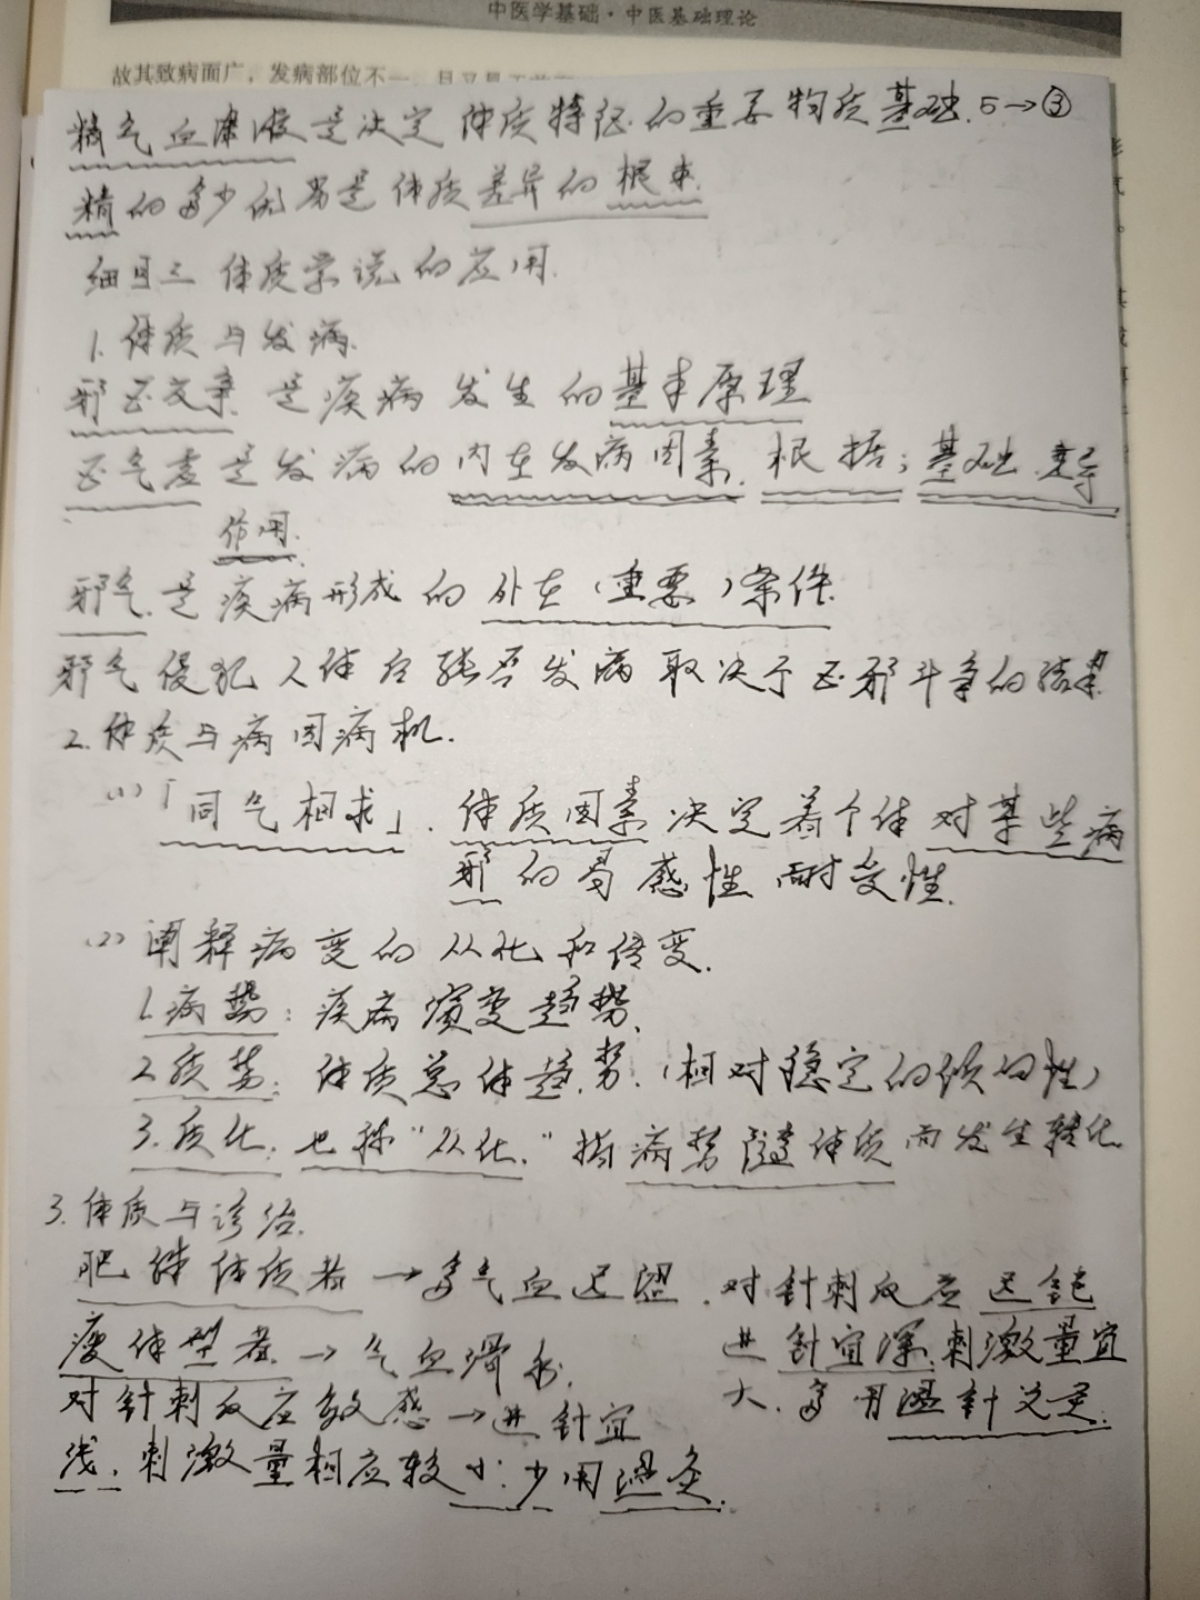 中医学基础·中医基础理论
故其致病面广，发病部位不一
精气血津液是决定体质特征的重要物质基础. 5→③
精的多少优劣是体质差异的根本.
细目三 体质学说的应用.
1. 体质与发病.
邪正交争 是疾病发生的基本原理
正气虚是发病的内在发病因素. 根据; 基础.主导
作用.
邪气.是疾病形成的外在(重要)条件.
邪气侵犯人体后能否发病取决于正邪斗争的结果.
2. 体质与病因病机.
(1)「同气相求」. 体质因素决定着个体对某些病
邪的易感性 耐受性.
(2) 阐释病变的从化和传变.
1. 病势: 疾病演变趋势.
2. 质势: 体质总体趋势.(相对稳定的倾向性)
3. 质化: 也称"从化." 指病势随体质而发生转化.
3. 体质与诊治.
肥胖体质者 →多气血迟涩. 对针刺反应迟钝
瘦体型者. → 气血滑利. 进针宜深.刺激量宜
对针刺反应敏感 →进针宜 大. 多用温针艾灸.
浅. 刺激量相应较小. 少用温灸.